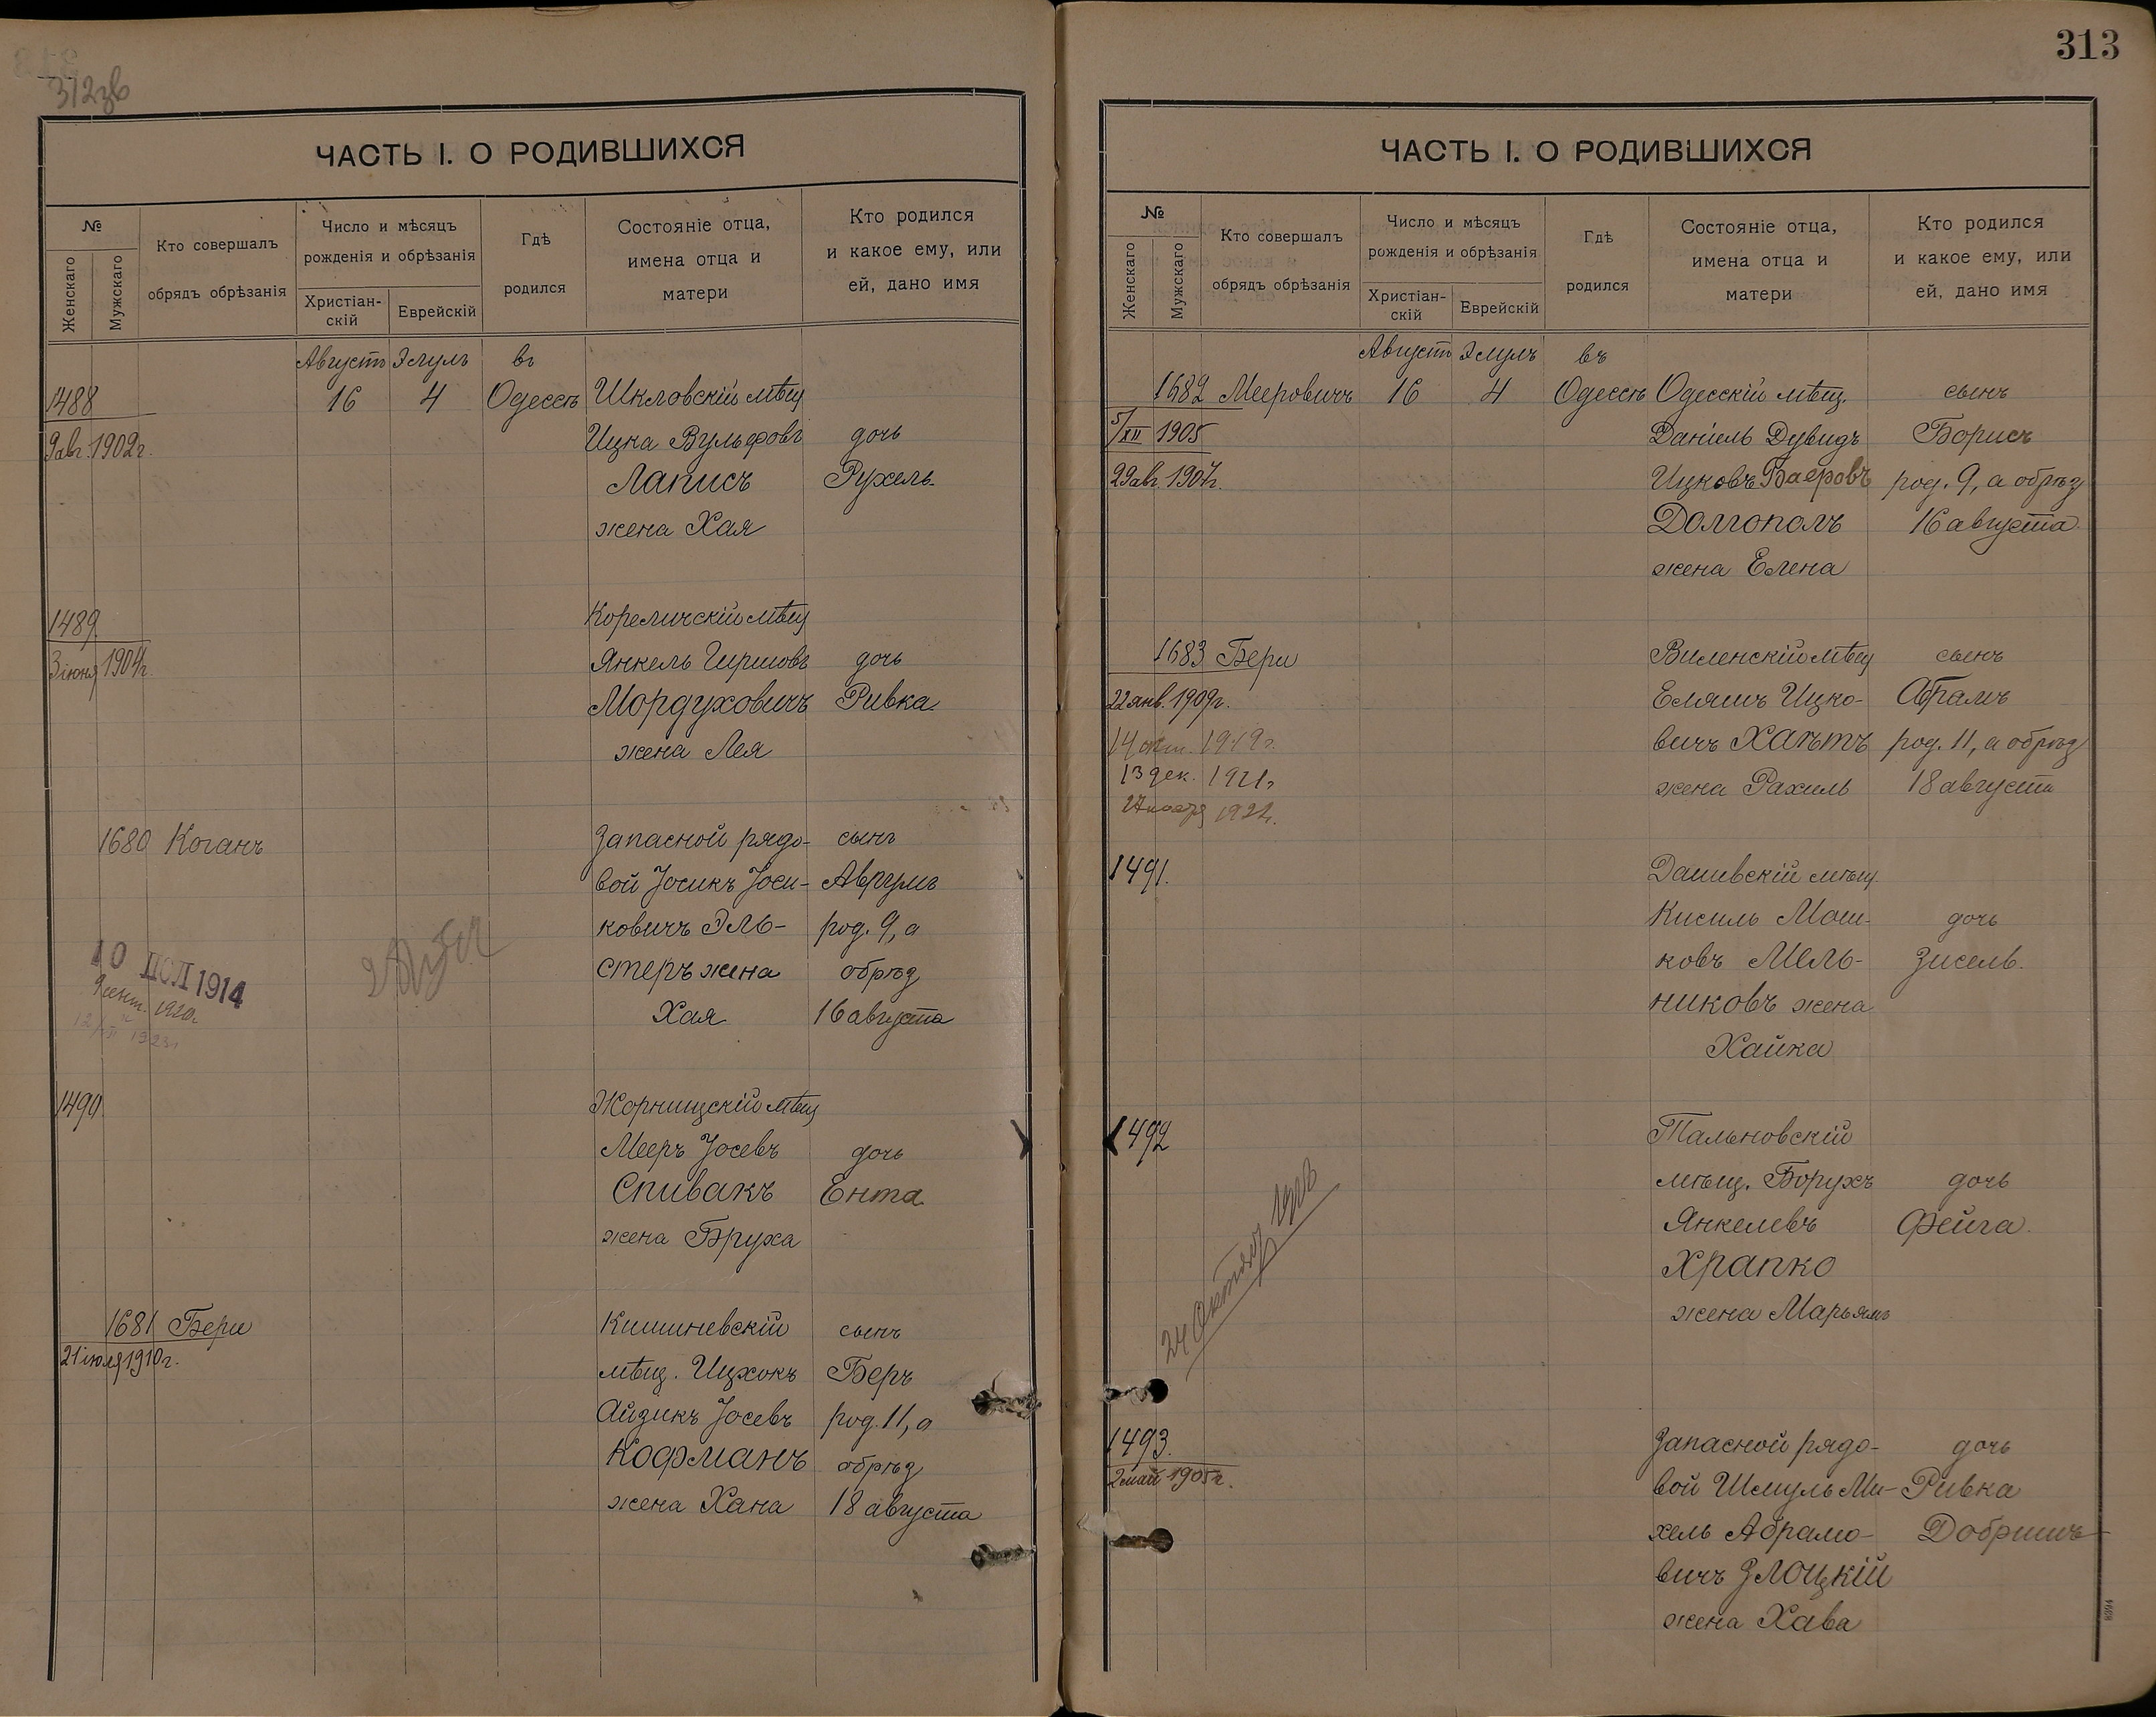 312зв
ЧАСТЬ I. О РОДИВШИХСЯ
№
Женскаго
Мужскаго
Кто совершалъ
обрядъ обрѣзанія
Число и мѣсяцъ
рожденія и обрѣзанія
Христіан-
скій
Еврейскій
Гдѣ
родился
Состояніе отца,
имена отца и
матери
Кто родился
и какое ему, или
ей, дано имя
Августъ Элулъ въ
1488 16 4 Одессѣ Шкловскій мѣщ
9 авг. 1902 г. Ицка Вульфовъ дочь
Лаписъ Рухель
жена Хая
1489 Кореличскій мѣщ
3 іюня 1904 г. Янкель Гиршовъ дочь
Мордуховичъ Ривка
жена Лея
1680 Коганъ Запасной рядо- сынъ
вой Іосикъ Іоси- Аврумъ
ковичъ Эль- род. 9, а
стеръ жена обрѣз
Хая 16 августа
10 ІЮЛ 1914
9 сент. 1920 г.
1490 Жорнищскій мѣщ
Мееръ Іосевъ дочь
Спивакъ Ента
жена Бруха
1681 Бери Кишиневскій сынъ
21 іюля 1910 г. мѣщ. Ицхокъ Беръ
Айзикъ Іосевъ род. 11, а
Кофманъ обрѣз
жена Хана 18 августа
313
ЧАСТЬ I. О РОДИВШИХСЯ
№
Женскаго
Мужскаго
Кто совершалъ
обрядъ обрѣзанія
Число и мѣсяцъ
рожденія и обрѣзанія
Христіан-
скій
Еврейскій
Гдѣ
родился
Состояніе отца,
имена отца и
матери
Кто родился
и какое ему, или
ей, дано имя
Августъ Элулъ въ
1682 Мееровичъ 16 4 Одессѣ Одесскій мѣщ. сынъ
5/XII 1905 Даніель Дувидъ Борисъ
29 авг. 1907 г. Ицковъ Баеровъ род. 9, а обрѣз
Долгополъ 16 августа
жена Елена
1683 Бери Виленскій мѣщ сынъ
22 янв. 1909 г. Еляшъ Ицко- Абрамъ
14 1919 г. вичъ Хаѣтъ род. 11, а обрѣз
13 дек. 1921 г жена Рахиль 18 августа
27 ноября 1922 г.
1491. Дашивскій мѣщ
Кисиль Мош- дочь
ковъ Мель- Зисель.
никовъ жена
Хайка
1492 Тальновскій
мѣщ. Борухъ дочь
Янкелевъ Фейга.
Храпко
жена Марьямъ
24 Октября
1493. Запасной рядо- дочь
2 май 1905 г. вой Шмуль Ми- Ривка
хель Абрамо- Добришъ
вичъ Злоцкій
жена Хава
8394